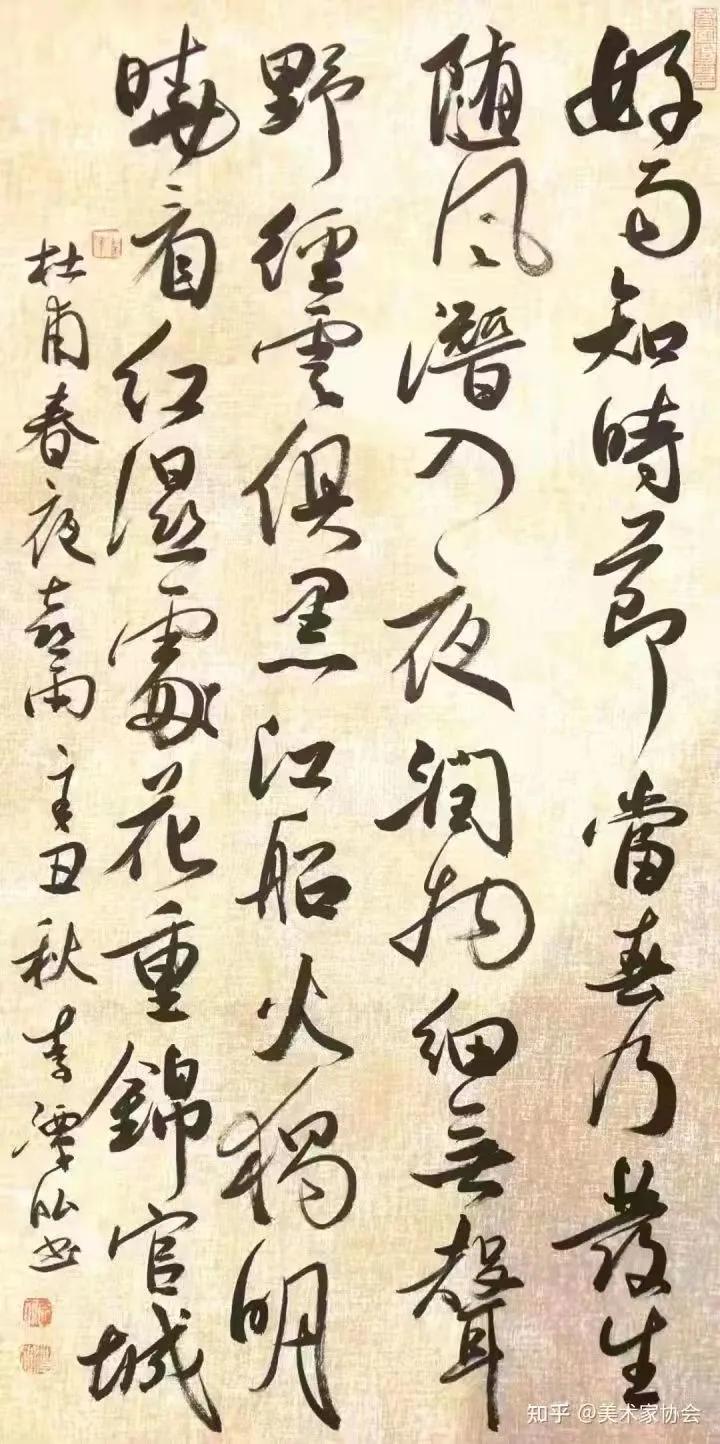 好雨知時節當春乃發生
随風潛入夜潤物細無聲
野徑雲俱黑江船火獨明
曉看紅濕處花重錦官城
杜甫春夜喜雨辛丑秋李潭書
知乎 @美术家协会